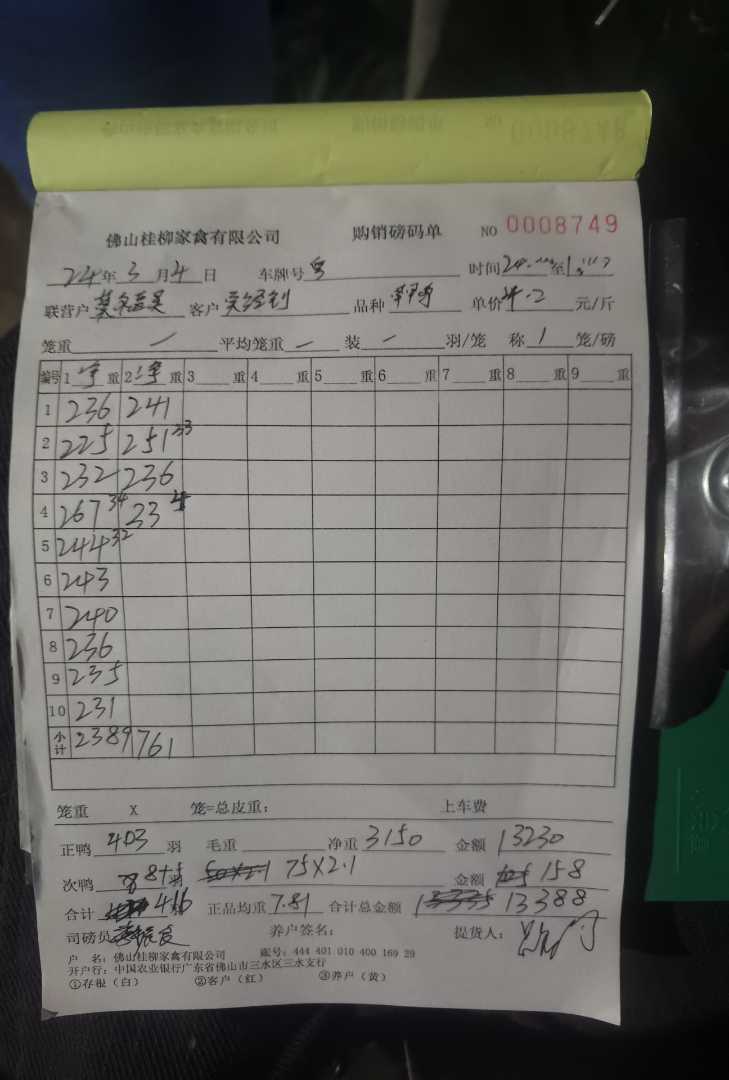 0008748
佛山桂柳家禽有限公司 购销磅码单 NO 0008749
24年3月4日 车牌号 时间 至
联营户 客户 品种 单价 4.2 元/斤
笼重 一 平均笼重 一 装 一 羽/笼 称 1 笼/磅
编号 1 净 重 2 净 重 3 重 4 重 5 重 6 重 7 重 8 重 9 重
1 236 241
2 225 251 33
3 232 236
4 267 34 33
5 244 32
6 243
7 240
8 236
9 235
10 231
小计 2389 761
笼重 X 笼=总皮重: 上车费
正鸭 403 羽 毛重 净重 3150 金额 13230
次鸭 8+5 羽 75X2.1 金额 158
合计 416 正品均重 7.81 合计总金额 13388
司磅员 养户签名: 提货人:
户 名: 佛山桂柳家禽有限公司 账号: 444 401 010 400 169 29
开户行: 中国农业银行广东省佛山市三水区三水支行
①存根（白） ②客户（红） ③养户（黄）